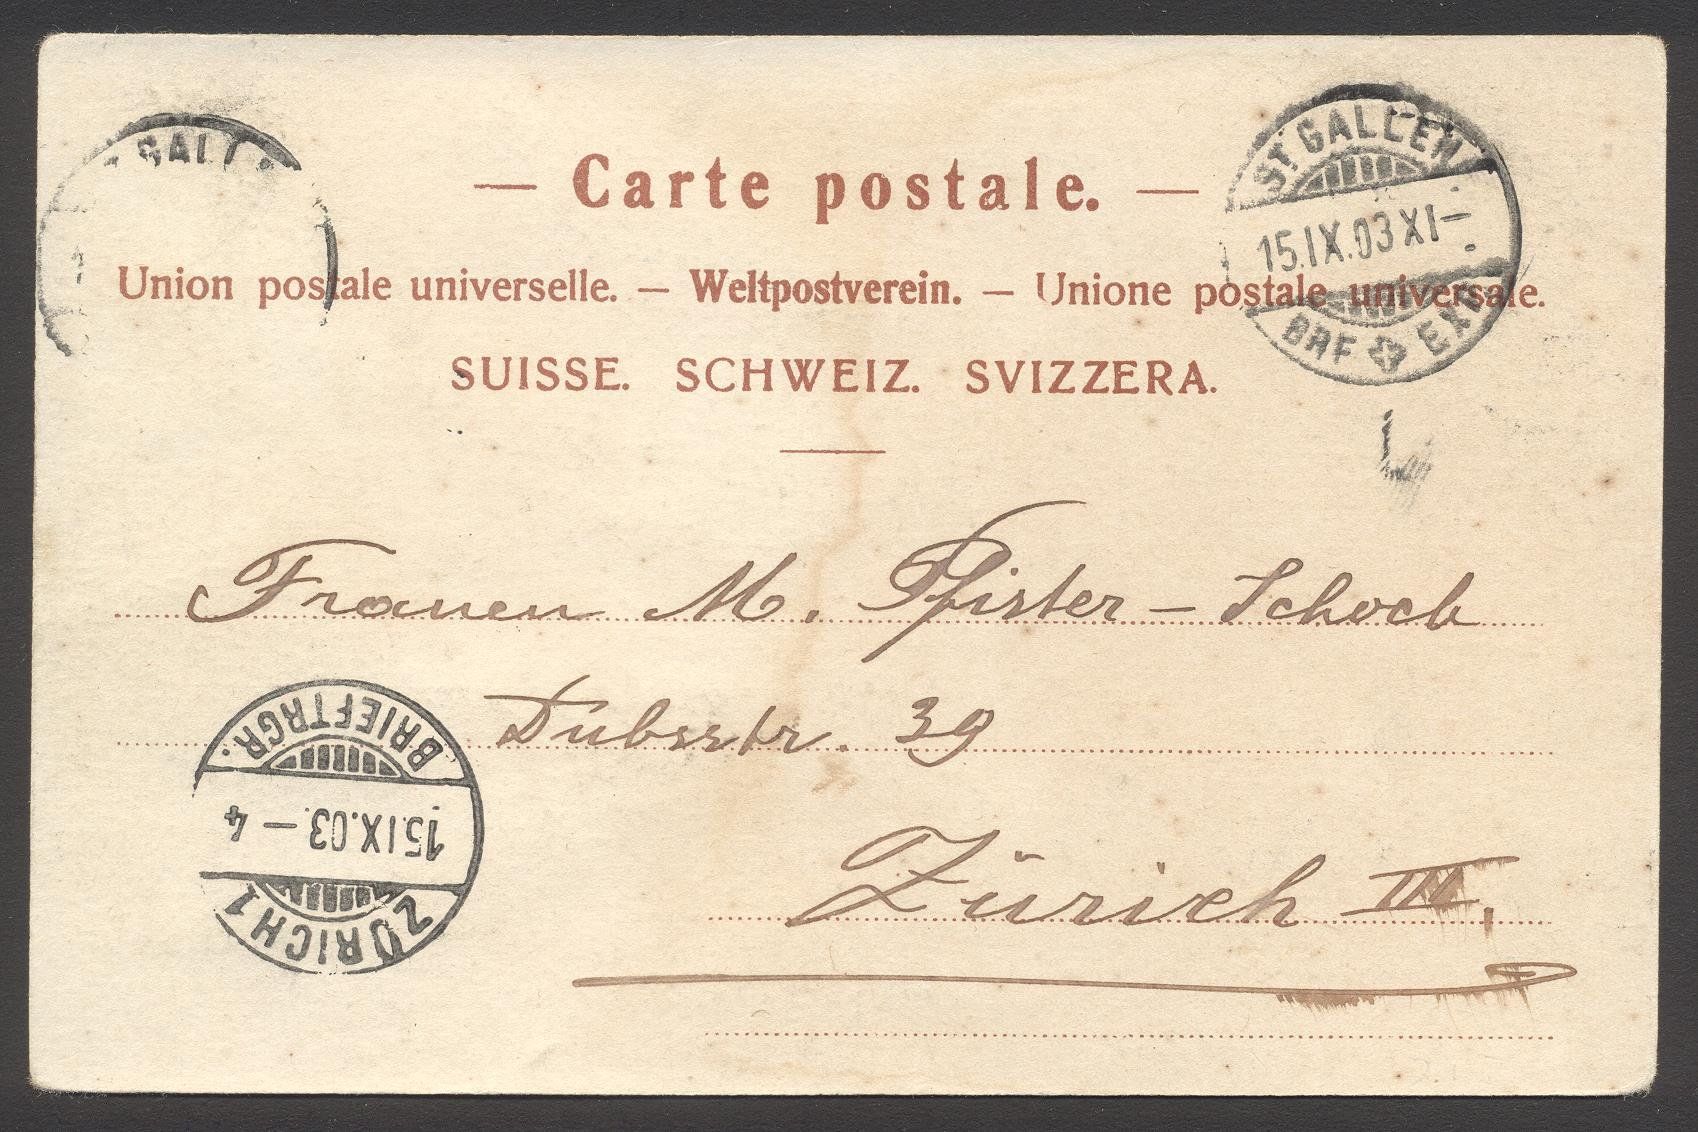 — Carte postale. —
Union postale universelle. — Weltpostverein. — Unione postale universale.
SUISSE. SCHWEIZ. SVIZZERA.
ST. GALLEN
15.IX.03 XI—
BRF EXP.
Frauen M. Pfister-Schoch
Dubsstr. 39
Zürich III.
ZÜRICH 1
15.IX.03.—4
BRIEFTRGR.